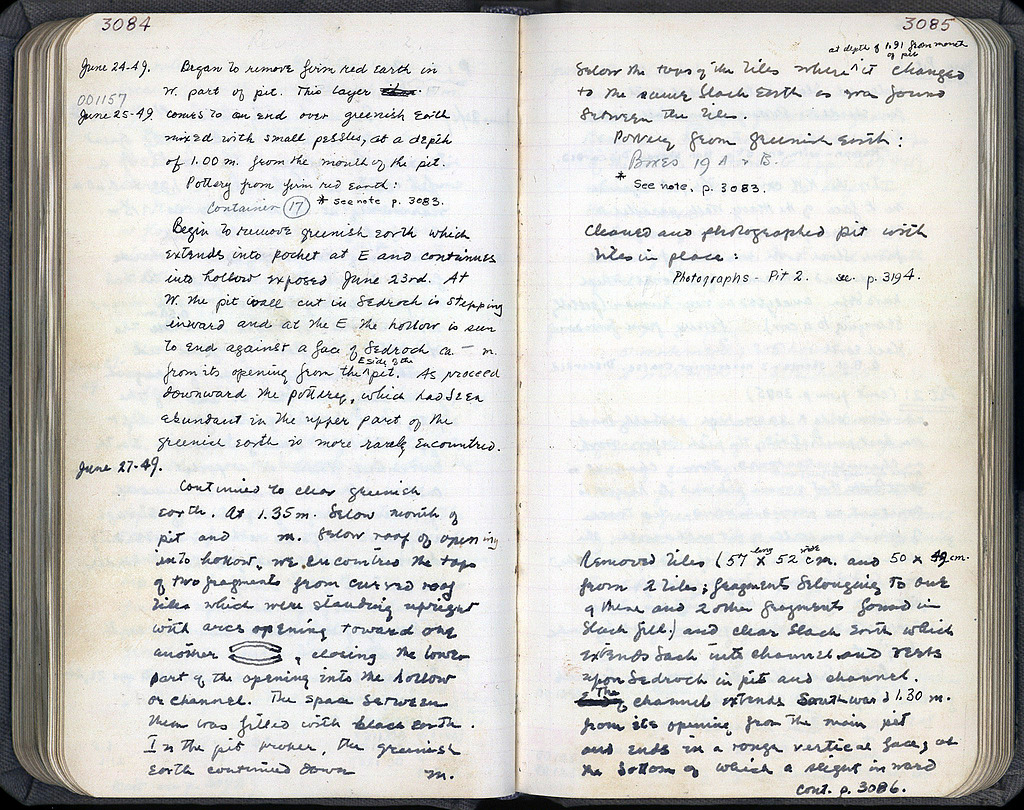 3084
June 24-49. Began to remove firm red earth in
W. part of pit. This layer
001157
June 25-49 comes to an end over greenish earth
mixed with small pebbles, at a depth
of 1.00 m. from the mouth of the pit.
Pottery from firm red earth:
Container 17 * see note p. 3083.
Begin to remove greenish earth which
extends into pocket at E and continues
into hollow exposed June 23rd. At
W. the pit wall cut in bedrock is stepping
inward and at the E the hollow is seen
to end against a face of bedrock ca. — m.
from its opening from the E side of the pit. As proceed
downward the pottery, which had been
abundant in the upper part of the
greenish earth is more rarely encountred.
June 27-49.
Continued to clear greenish
earth. At 1.35 m. below mouth of
pit and m. below roof of opening
into hollow, we encountred the tops
of two fragments from curved roof
tiles which were standing upright
with arcs opening toward one
another , closing the lower
part of the opening into the hollow
or channel. The space between
them was filled with black earth.
In the pit proper, the greenish
earth continued down m.
3085
at depth of 1.91 from mouth
of pit
below the tops of the tiles where it changed
to the same black earth as was found
between the tiles.
Pottery from greenish earth:
Boxes 19 A + B.
* See note, p. 3083.
Cleaned and photographed pit with
tiles in place:
Photographs - Pit 2. see p. 3194.
Removed tiles (57 long x 52 wide cm. and 50 x 49 cm.
from 2 tiles; fragments belonging to one
of these and 2 other fragments found in
black fill.) and clear black earth which
extends back into channel and rests
upon bedrock in pit and channel.
The channel extends southward 1.30 m.
from its opening from the main pit
and ends in a rough vertical face, at
the bottom of which a slight inward
cont. p. 3086.